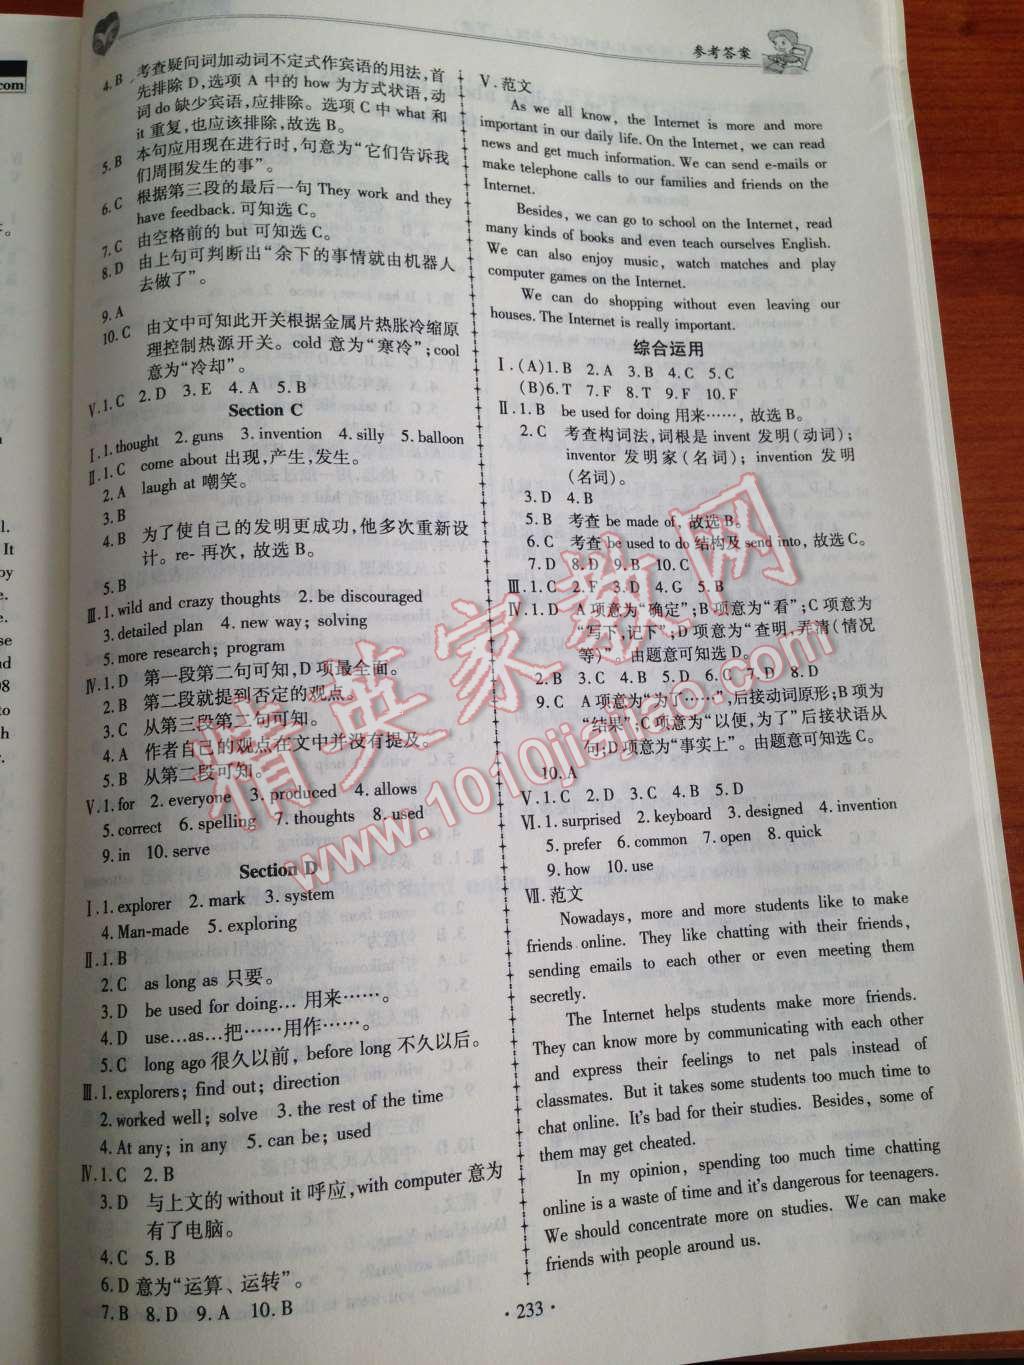 参考答案
4. B 考查疑问词加动词不定式作宾语的用法，首
先排除 D，选项 A 中的 how 为方式状语，动
词 do 缺少宾语，应排除。选项 C 中 what 和
it 重复，也应该排除，故选 B。
5. B 本句应用现在进行时，句意为“它们告诉我
们周围发生的事”。
6. C 根据第三段的最后一句 They work and they
have feedback. 可知选 C。
7. C 由空格前的 but 可知选 C。
8. D 由上句可判断出“余下的事情就由机器人
去做了”。
9. A
10. C 由文中可知此开关根据金属片热胀冷缩原
理控制热源开关。cold 意为“寒冷”；cool
意为“冷却”。
Ⅴ. 1. C 2. D 3. E 4. A 5. B
Section C
Ⅰ. 1. thought 2. guns 3. invention 4. silly 5. balloon
Ⅱ. 1. C come about 出现，产生，发生。
2. A laugh at 嘲笑。
3. B
4. B 为了使自己的发明更成功，他多次重新设
计。re- 再次，故选 B。
5. B
Ⅲ. 1. wild and crazy thoughts 2. be discouraged
3. detailed plan 4. new way; solving
5. more research; program
Ⅳ. 1. D 第一段第二句可知，D 项最全面。
2. B 第二段就提到否定的观点。
3. C 从第三段第二句可知。
4. A 作者自己的观点在文中并没有提及。
5. B 从第二段可知。
Ⅴ. 1. for 2. everyone 3. produced 4. allows
5. correct 6. spelling 7. thoughts 8. used
9. in 10. serve
Section D
Ⅰ. 1. explorer 2. mark 3. system
4. Man-made 5. exploring
Ⅱ. 1. B
2. C as long as 只要。
3. D be used for doing… 用来……。
4. D use…as…把……用作……。
5. C long ago 很久以前，before long 不久以后。
Ⅲ. 1. explorers; find out; direction
2. worked well; solve 3. the rest of the time
4. At any; in any 5. can be; used
Ⅳ. 1. C 2. B
3. D 与上文的 without it 呼应，with computer 意为
有了电脑。
4. C 5. B
6. D 意为“运算、运转”。
7. B 8. D 9. A 10. B
Ⅴ. 范文
As we all know, the Internet is more and more
important in our daily life. On the Internet, we can read
news and get much information. We can send e-mails or
make telephone calls to our families and friends on the
Internet.
Besides, we can go to school on the Internet, read
many kinds of books and even teach ourselves English.
We can also enjoy music, watch matches and play
computer games on the Internet.
We can do shopping without even leaving our
houses. The Internet is really important.
综合运用
Ⅰ. (A)1. B 2. A 3. B 4. C 5. C
(B)6. T 7. F 8. T 9. F 10. F
Ⅱ. 1. B be used for doing 用来……，故选 B。
2. C 考查构词法，词根是 invent 发明（动词）；
inventor 发明家（名词）；invention 发明
（名词）。
3. D 4. B
5. B 考查 be made of，故选 B。
6. C 考查 be used to do 结构及 send into，故选 C。
7. D 8. D 9. B 10. C
Ⅲ. 1. C 2. F 3. D 4. G 5. B
Ⅳ. 1. D A 项意为“确定”；B 项意为“看”；C 项意为
“写下，记下”；D 项意为“查明，弄清（情况
等）”。由题意可知选 D。
2. B 3. C 4. B 5. D 6. C 7. D 8. D
9. C A 项意为“为了……”，后接动词原形；B 项为
“结果”；C 项意为“以便，为了”后接状语从
句；D 项意为“事实上”。由题意可知选 C。
10. A
Ⅴ. 1. C 2. D 3. C 4. B 5. D
Ⅵ. 1. surprised 2. keyboard 3. designed 4. invention
5. prefer 6. common 7. open 8. quick
9. how 10. use
Ⅶ. 范文
Nowadays, more and more students like to make
friends online. They like chatting with their friends,
sending emails to each other or even meeting them
secretly.
The Internet helps students make more friends.
They can know more by communicating with each other
and express their feelings to net pals instead of
classmates. But it takes some students too much time to
chat online. It's bad for their studies. Besides, some of
them may get cheated.
In my opinion, spending too much time chatting
online is a waste of time and it's dangerous for teenagers.
We should concentrate more on studies. We can make
friends with people around us.
· 233 ·
精英家教网
www.1010jiajiao.com